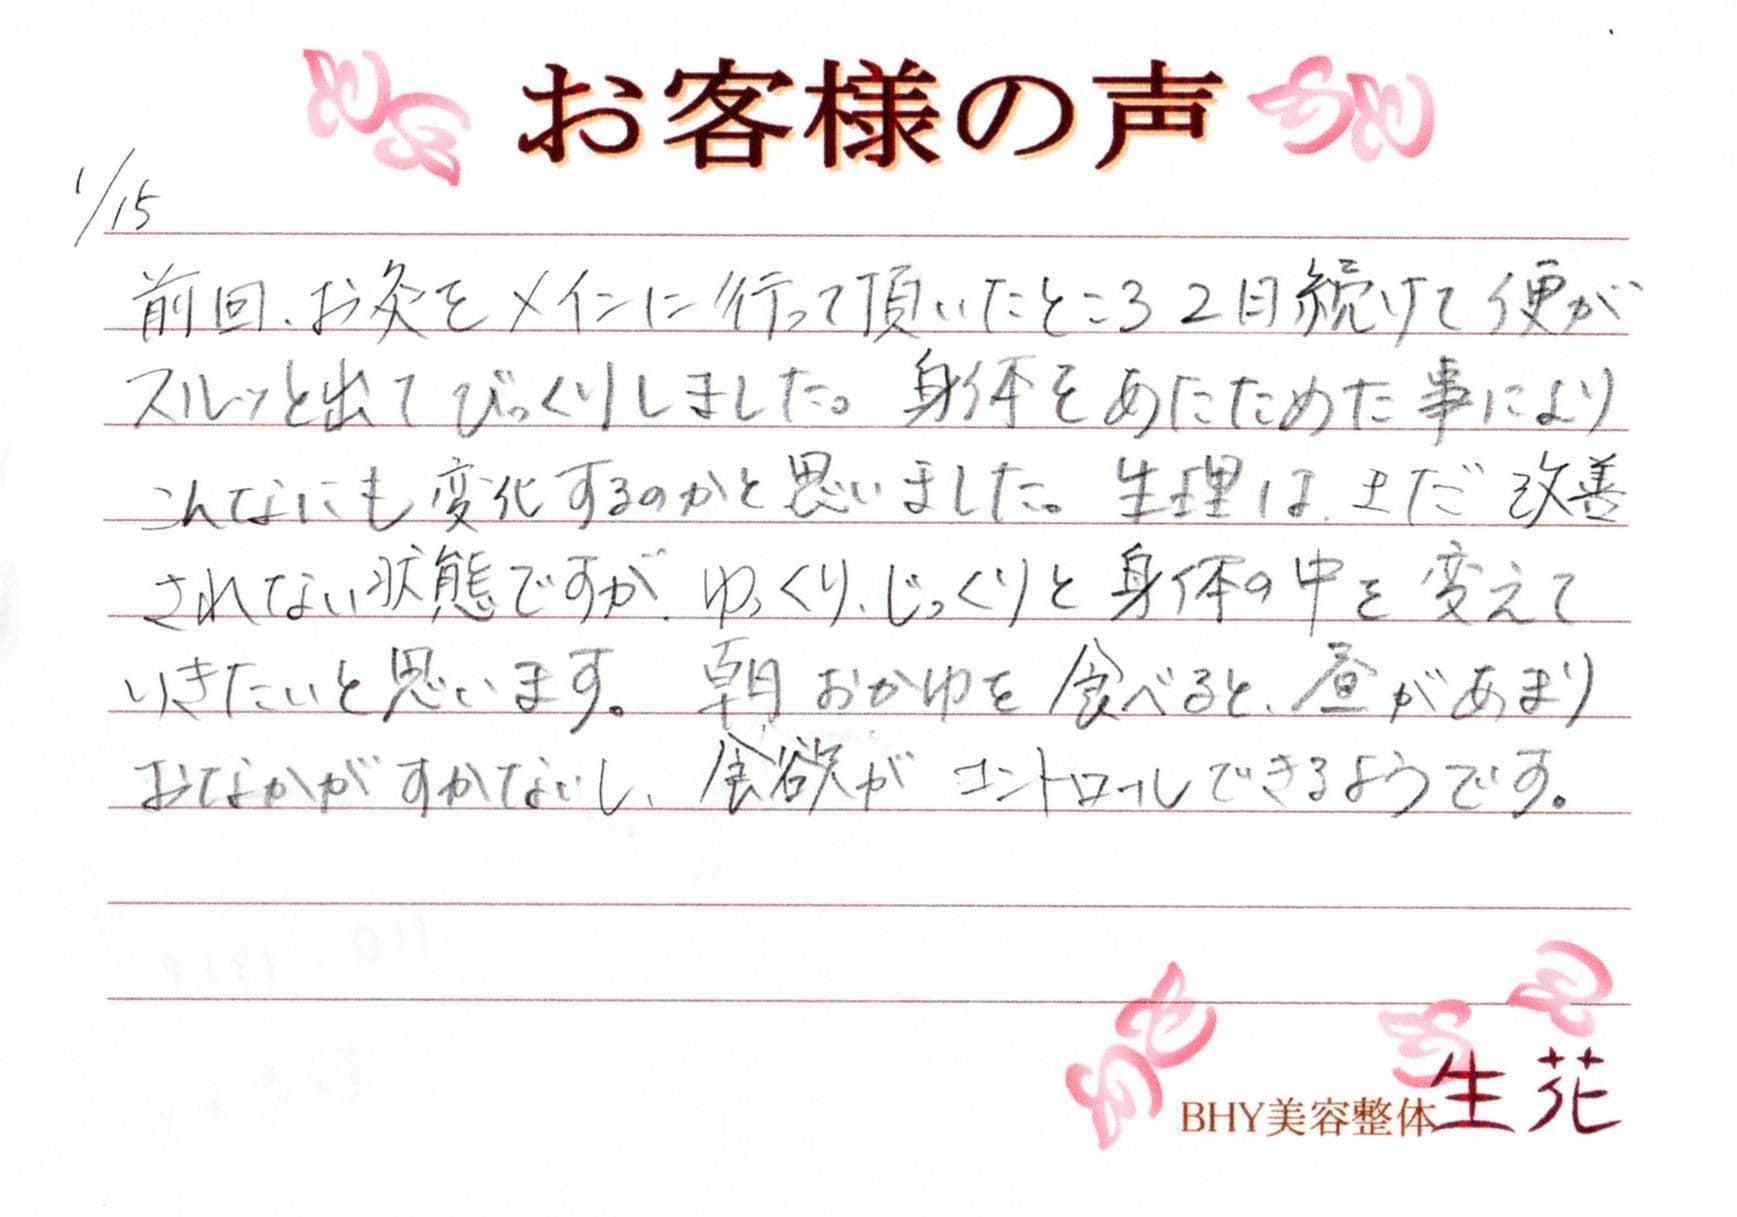 お客様の声
1/15
前回、お灸をメインに行って頂いたところ2日続けて便が
スルッと出てびっくりしました。身体をあたためた事により
こんなにも変化するのかと思いました。生理は、まだ改善
されない状態ですが、ゆっくり、じっくりと身体の中を変えて
いきたいと思います。朝おかゆを食べると、昼があまり
おなかがすかないし、食欲がコントロールできるようです。
BHY美容整体生花